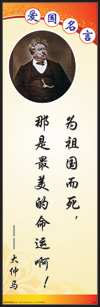 爱国名言
为祖国而死，
那是最美的命运啊！
——大仲马